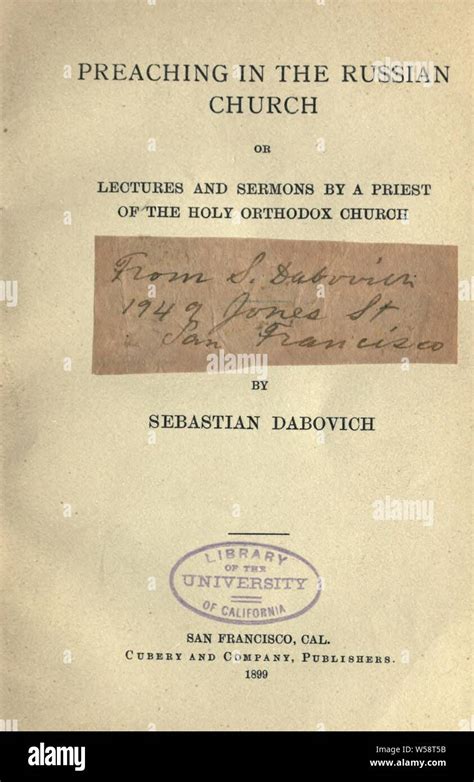 PREACHING IN THE RUSSIAN
CHURCH
OR
LECTURES AND SERMONS BY A PRIEST
OF THE HOLY ORTHODOX CHURCH
From S. Dabovich
1949 Jones St
San Francisco
BY
SEBASTIAN DABOVICH
LIBRARY
OF THE
UNIVERSITY
OF CALIFORNIA
SAN FRANCISCO, CAL.
CUBERY AND COMPANY, PUBLISHERS.
1899
alamy
alamy stock photo
W58T5B
www.alamy.com